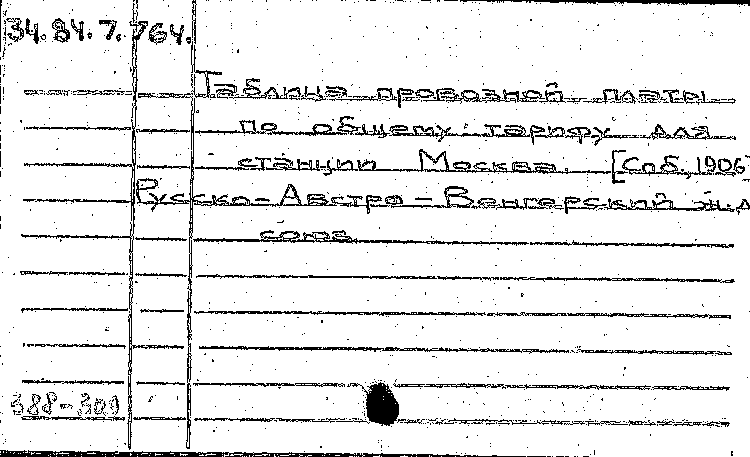 34.84.7.764.
Таблица провозной платы
по общему тарифу для
станции Москва. [Спб., 1906
Русско-Австро-Венгерский ж.д
союз
388-309